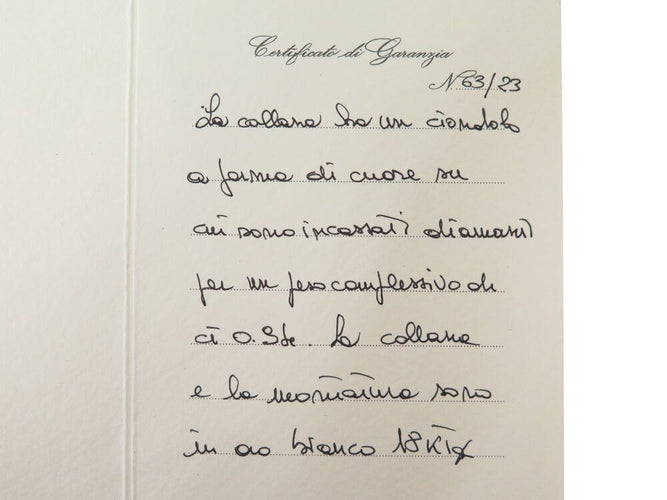 Certificato di Garanzia
N. 63/23
La collana ha un ciondolo
a forma di cuore su
cui sono incassati diamanti
per un peso complessivo di
ct 0.
La collana
e la montatura sono
in oro bianco 18 Kt